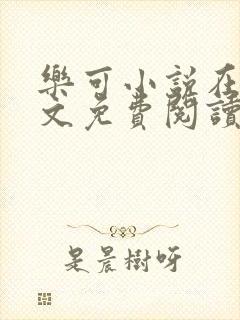 樂可小說在
文免費閱讀
是晨樹呀